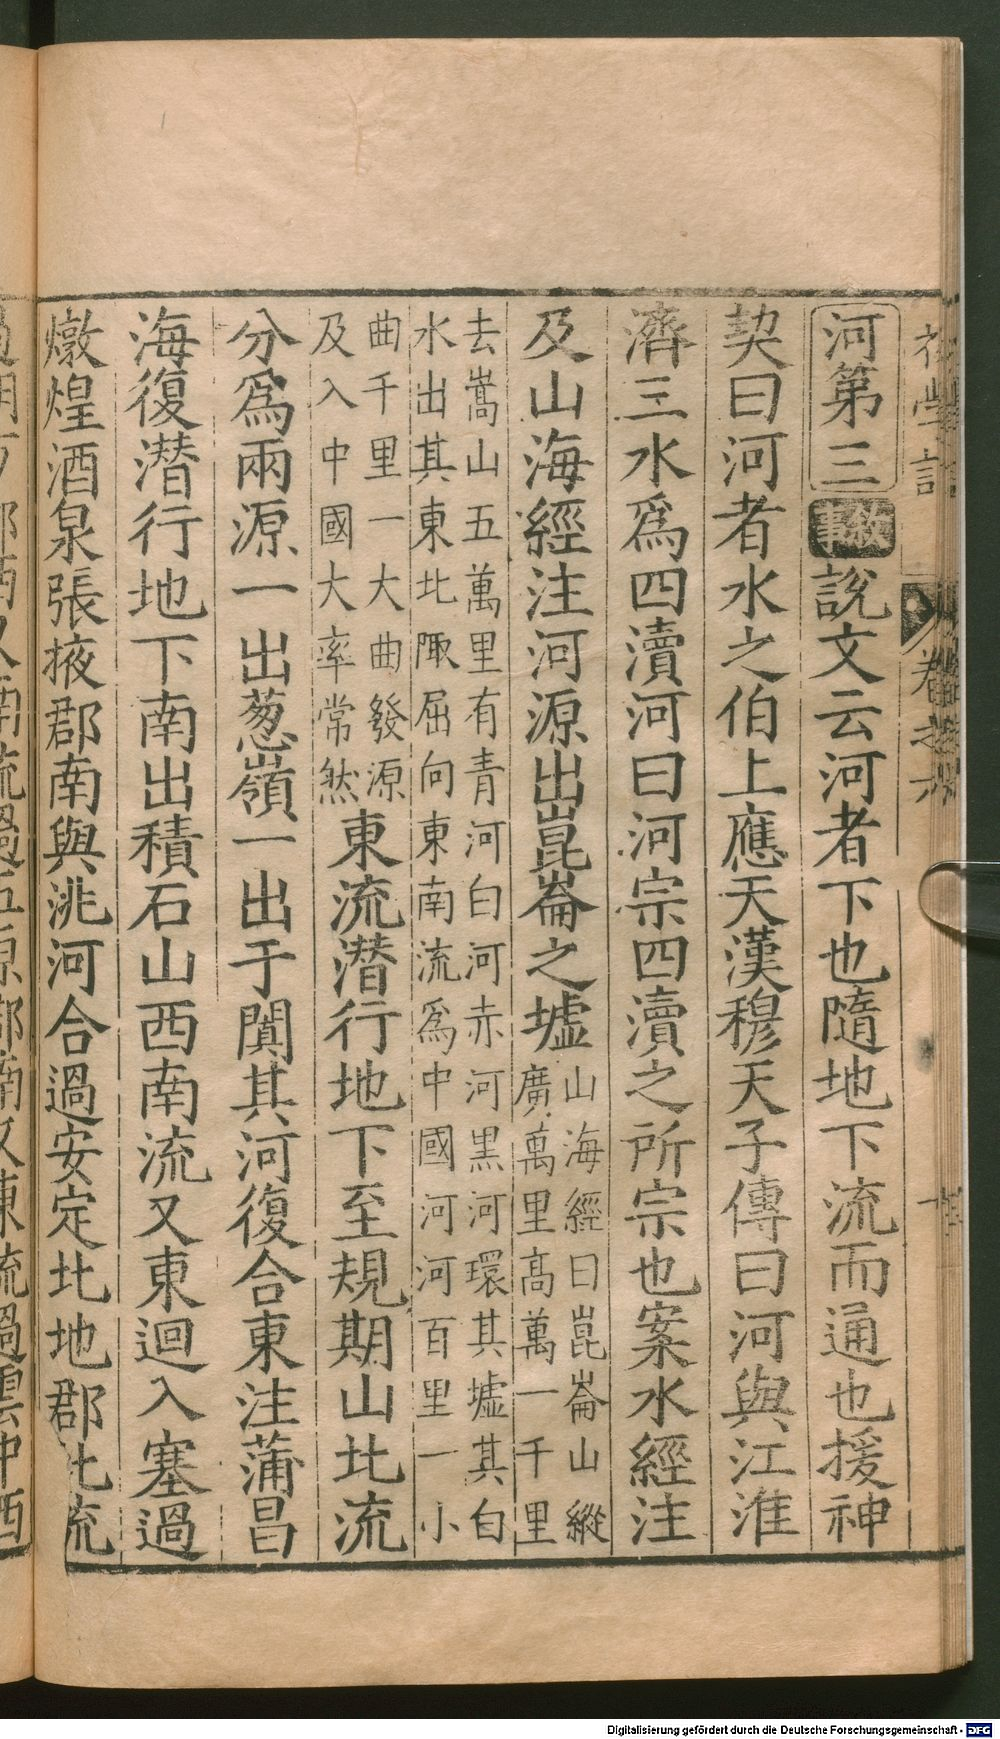 初學記 卷之六
河第三 敘事 說文云河者下也隨地下流而通也援神
契曰河者水之伯上應天漢穆天子傳曰河與江淮
濟三水爲四瀆河曰河宗四瀆之所宗也案水經注
及山海經注河源出崑崙之墟 山海經曰崑崙山縱
廣萬里高萬一千里
去嵩山五萬里有青河白河赤河黑河環其墟其白
水出其東北陬屈向東南流爲中國河河百里一小
曲千里一大曲發源
及入中國大率常然 東流潛行地下至規期山北流
分爲兩源一出葱嶺一出于闐其河復合東注蒲昌
海復潛行地下南出積石山西南流又東迴入塞過
燉煌酒泉張掖郡南與洮河合過安定北地郡北流
Digitalisierung gefördert durch die Deutsche Forschungsgemeinschaft - DFG